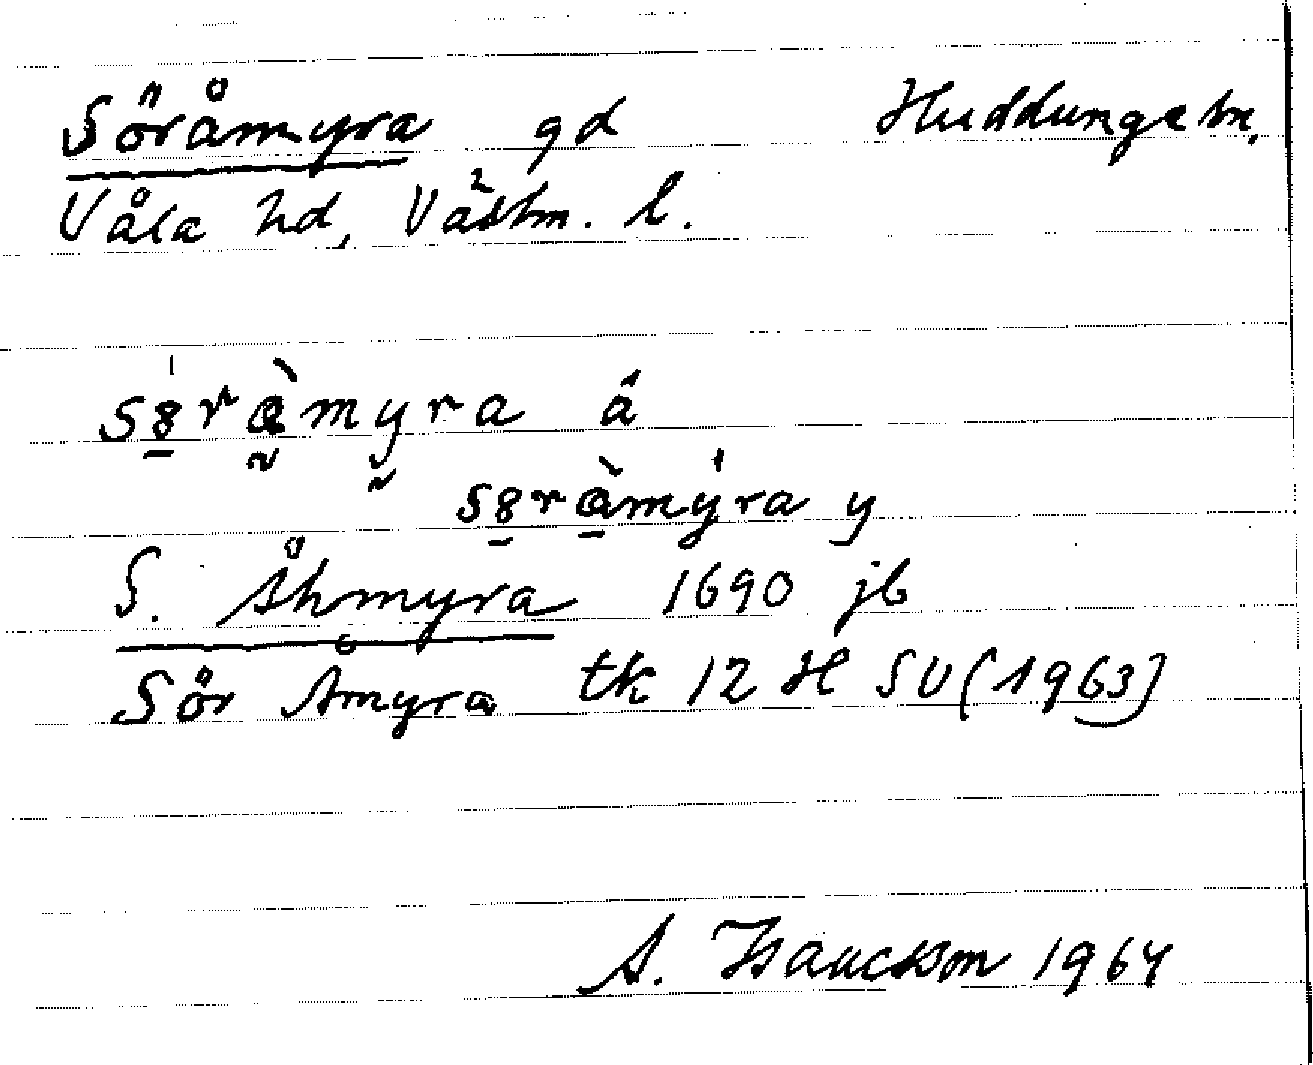 Söråmyra gd Huddunge sn.
Våla hd, Västm. l.
sörå̀myra ä
sörå̀mýra y
S. Åhmyra 1690 jb
Sör Åmyra tk 12 H SV (1963)
A. Isaacsson 1964